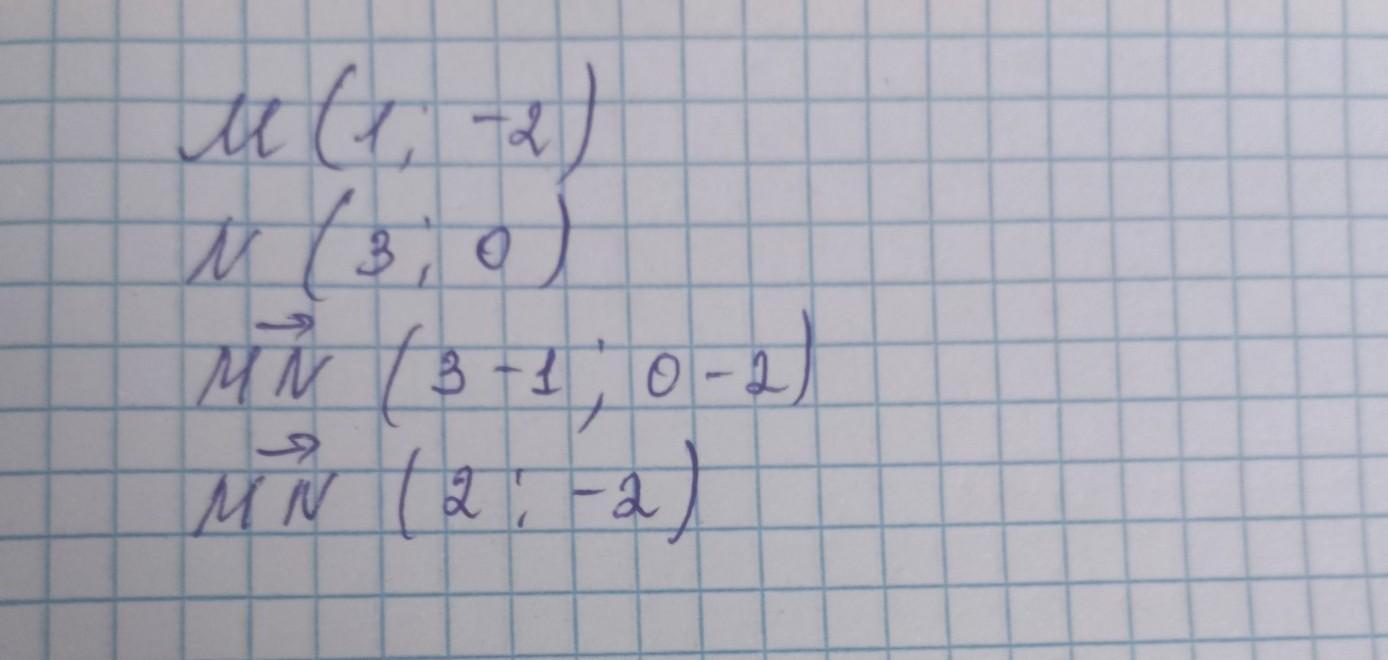 M (1; -2)
N (3; 0)
→
MN (3-1; 0-2)
→
MN (2; -2)